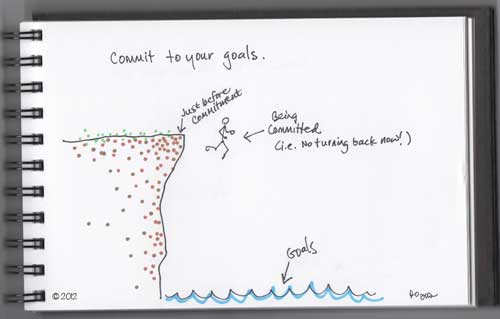 Commit to your goals.
Just before
commitment
Being
Committed
(i.e. No turning back now!)
Goals
© 2012